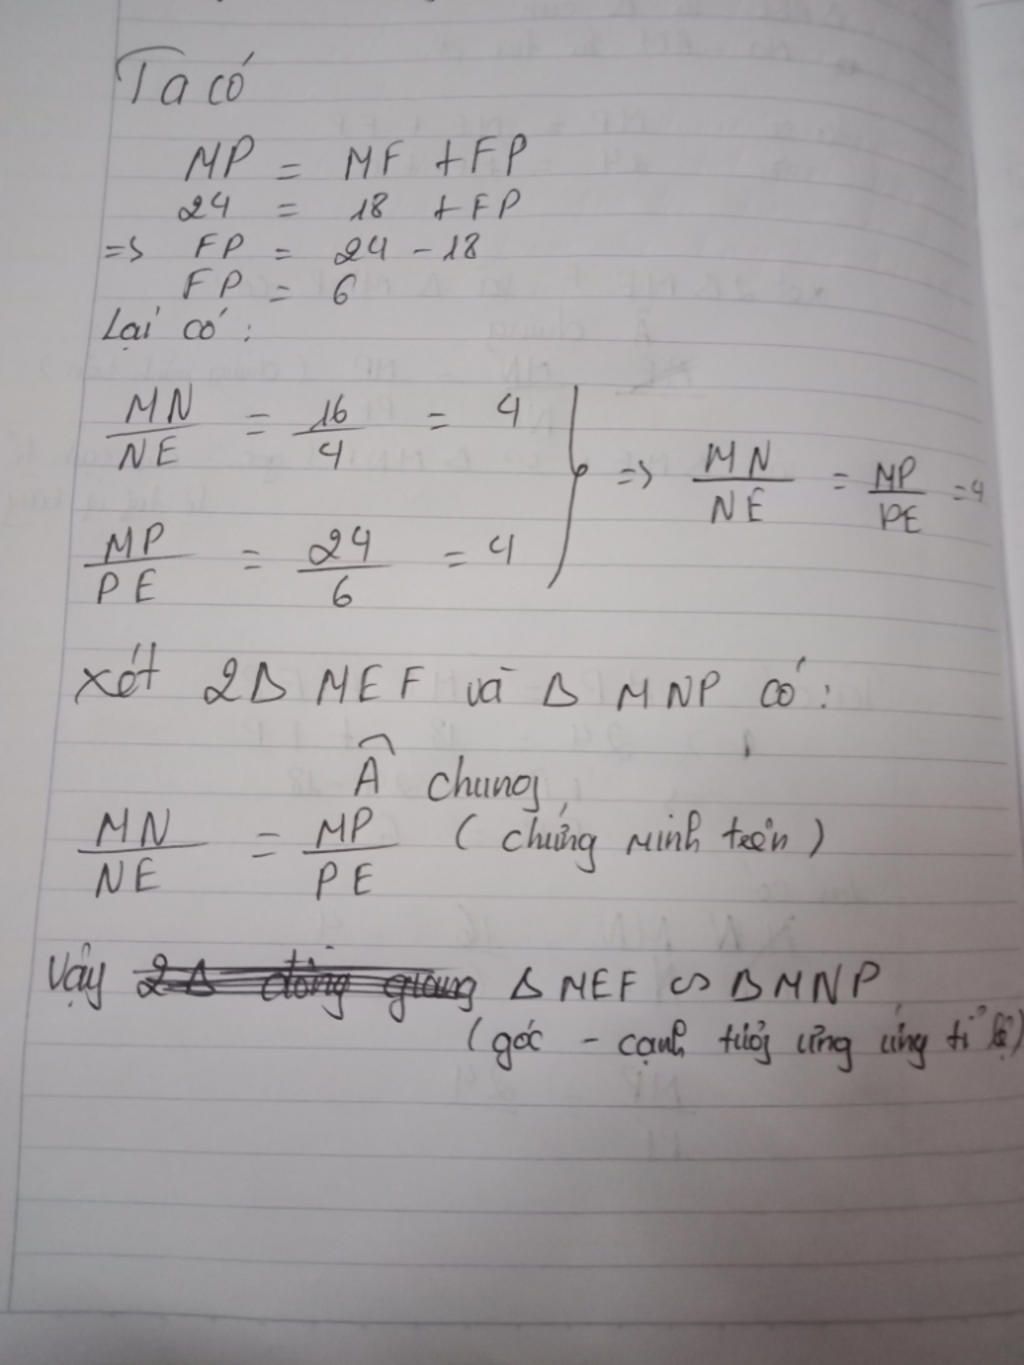 Ta có
MP = MF + FP
24 = 18 + FP
=> FP = 24 - 18
FP = 6
Lại có:
MN/NE = 16/4 = 4
MP/PE = 24/6 = 4
=> MN/NE = MP/PE = 4
xét 2Δ MEF và Δ MNP có:
Â chung
MN/NE = MP/PE (chứng minh trên)
Vậy Δ MEF ∽ Δ MNP
(góc - cạnh tương ứng ứng tỉ lệ)